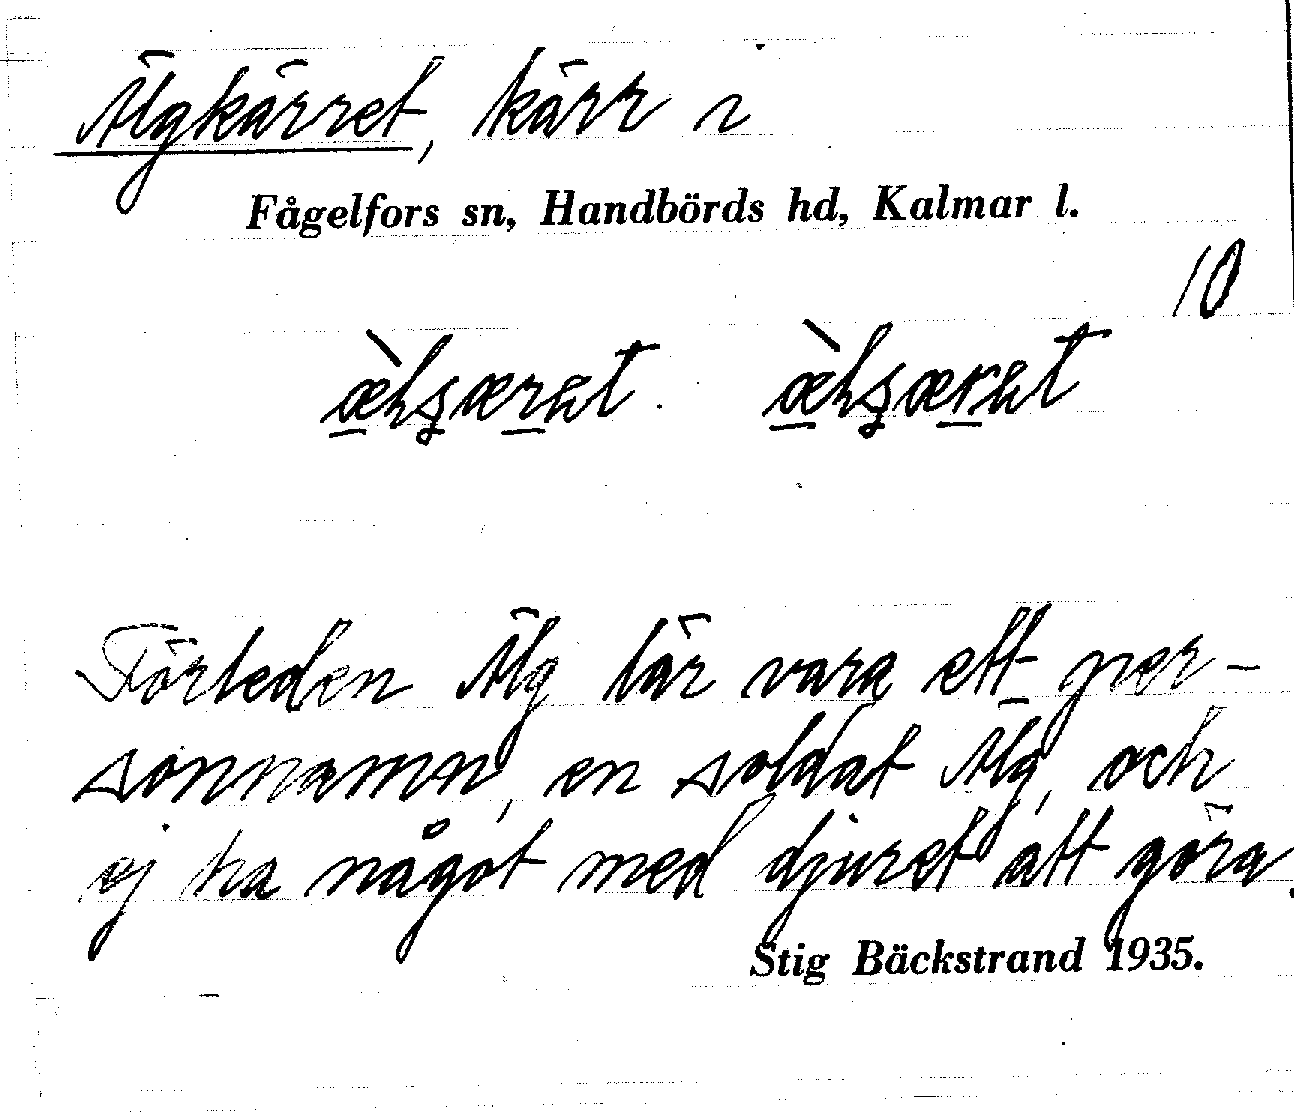 Älgkärret, kärr i
Fågelfors sn, Handbörds hd, Kalmar l.
10
Förleden Älg lär vara ett per-
sonnamn, en soldat Älg, och
ej ha något med djuret att göra.
Stig Bäckstrand 1935.